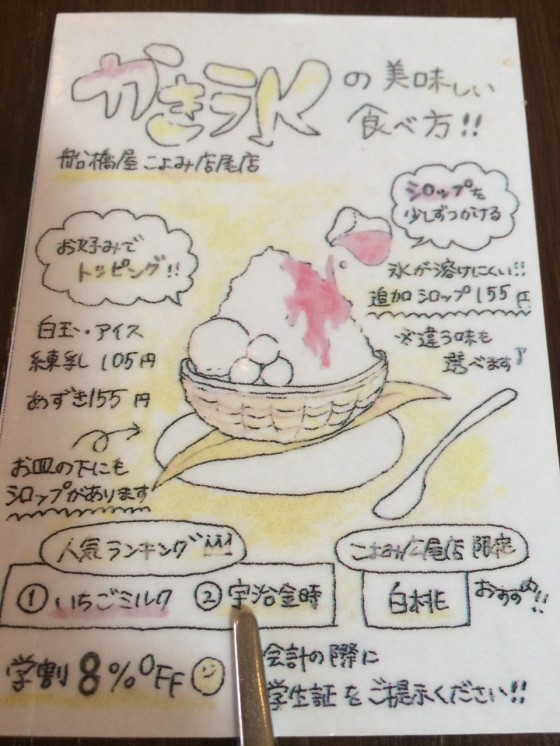 かき氷の美味しい
食べ方!!
船橋屋こよみ広尾店
シロップを
少しずつかける
お好みで
トッピング!!
氷が溶けにくい!!
追加シロップ155円
※違う味も
選べます♪
白玉・アイス
練乳 105円
あずき155円
お皿の下にも
シロップがあります
人気ランキング
① いちごミルク ② 宇治金時
こよみ広尾店 限定
白桃 おすすめ!!
学割 8%OFF
会計の際に
学生証をご提示ください!!